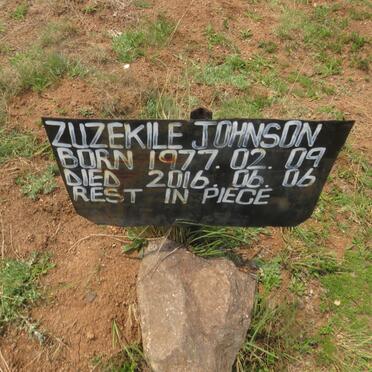 ZUZEKILE JOHNSON
BORN 1977. 02. 09
DIED 2016. 06. 06
REST IN PIECE